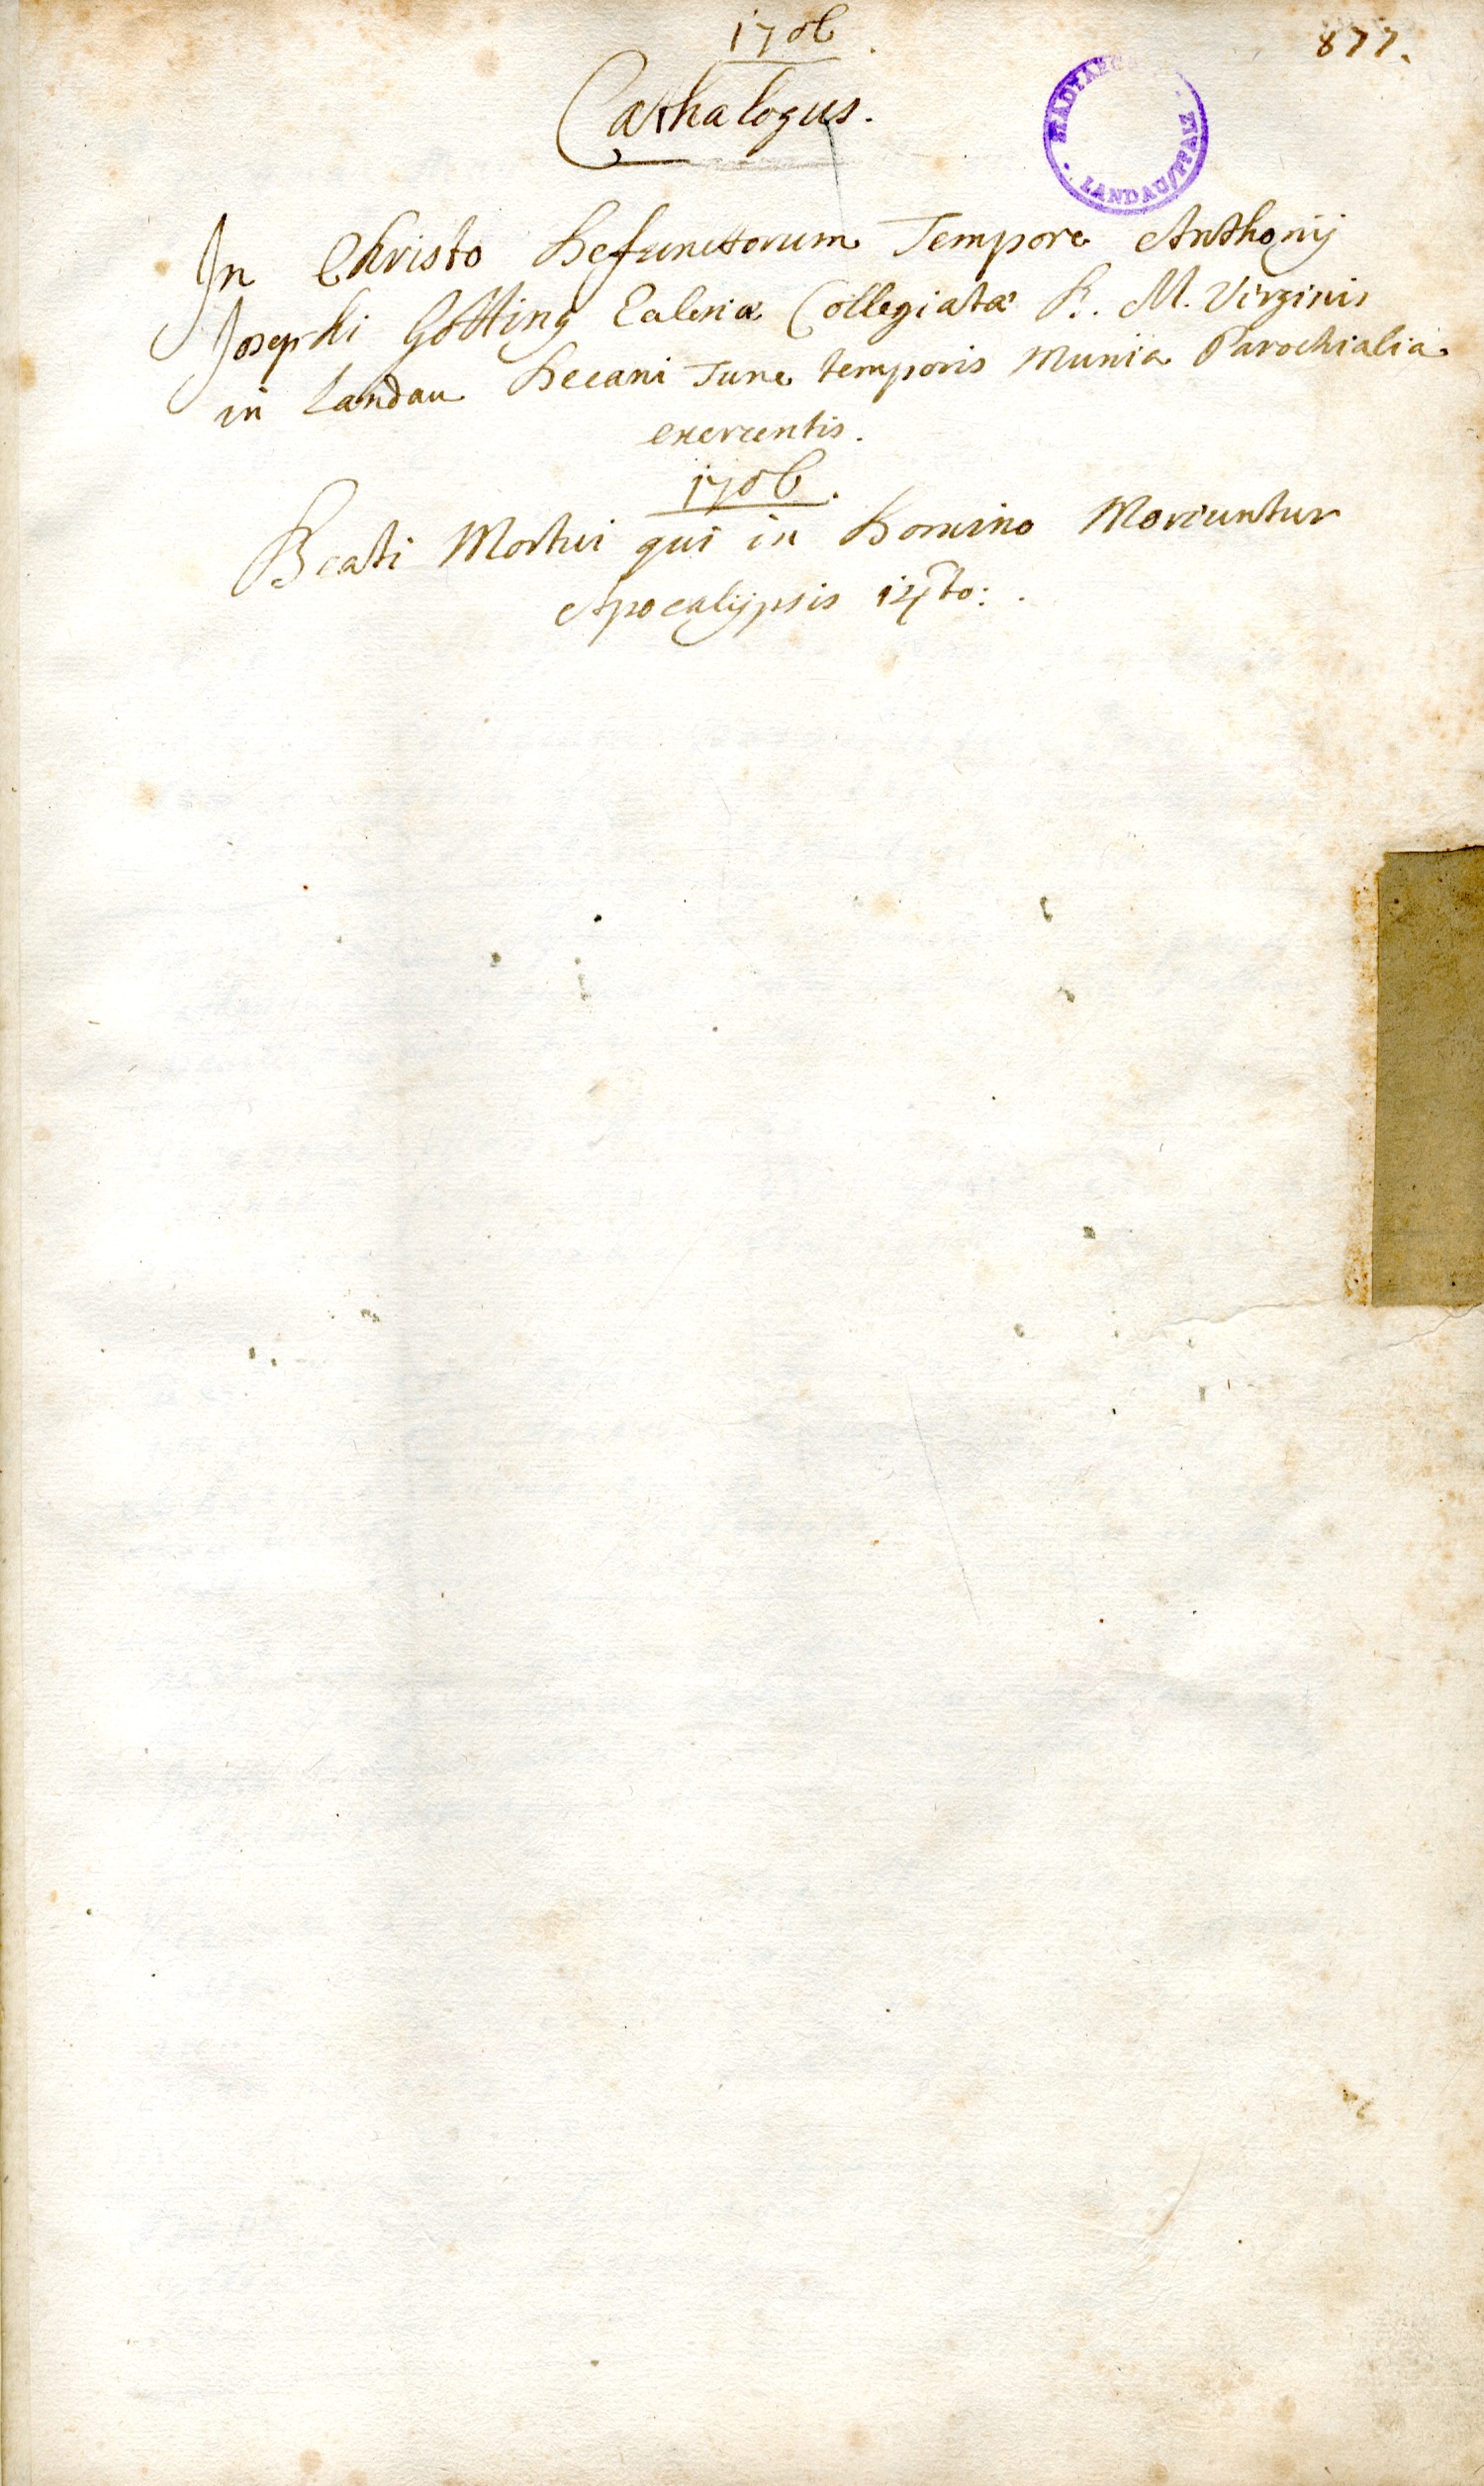 1706.
877.
Cathalogus.
STADTARCHIV · LANDAU/PFALZ ·
In Christo Defunctorum Tempore Anthonij
Josephi Götting Eccl͞esiæ Collegiatæ B. M. Virginis
in Landau Decani Tunc temporis Munia Parochialia
exercentis.
1706.
Beati Mortui qui in Domino Moriuntur
Apocalijpsis 14to:.